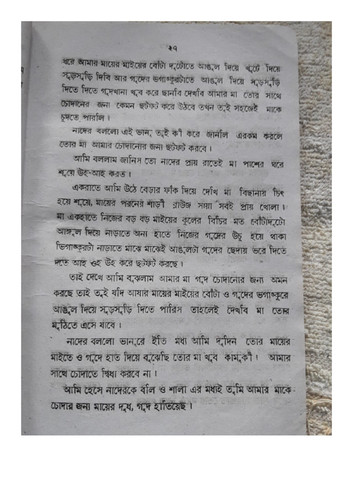 ২৭
ধরে আমার মায়ের মাইয়ের বোঁটা দুটোতে আঙুল দিয়ে খুঁটে দিয়ে
সুড়সুড়ি দিবি আর গুদের ভগাঙ্কুরটাতে আঙুল দিয়ে সুড়সুড়ি
দিতে দিতে গুদখানা খুব করে ছানবি দেখবি আমার মা তোর সাথে
চোদানোর জন্য কেমন ছটফট করে উঠবে তখন তুই সহজেই মাকে
চুদতে পারবি।
নাদের বললো এই ভানু তুই কী করে জানলি এরকম করলে
তোর মা আমার চোদানোর জন্য ছটফট করবে।
আমি বললাম জানিস তো নাদের প্রায় রাতেই মা পাশের ঘরে
শুয়ে উহ-আহ করত।
একরাতে আমি উঠে বেড়ার ফাঁক দিয়ে দেখি মা বিছানায় চিৎ
হয়ে শুয়ে, মায়ের পরনের শাড়ী ব্লাউজ সায়া সবই প্রায় খোলা।
মা একহাতে নিজের বড় বড় মাইয়ের কুলের বিচির মত বোঁটাদুটো
আঙ্গুল দিয়ে নাড়াতে অন্য হাতে নিজের গুদের উঁচু হয়ে থাকা
ভগাঙ্কুরটা নাড়াতে মাঝে মাঝেই আঙুলটা গুদের ছেদায় ভরে দিতে
দিতে আহ ওহ উহ করে ছটফট করছে।
তাই দেখে আমি বুঝলাম আমার মা গুদ চোদানোর জন্য অমন
করছে তাই তুই যদি আমার মায়ের মাইয়ের বোঁটা ও গুদের ভগাঙ্কুরে
আঙুল দিয়ে সুড়সুড়ি দিতে পারিস তাহলেই দেখবি মা তোর
মুঠিতে এসে যাবে।
নাদের বললো ভানুরে ইতি মধ্য আমি দুদিন তোর মায়ের
মাইতে ও গুদে হাত দিয়ে বুঝেছি তোর মা খুব কামুকী। আমার
সাথে চোদাতে দ্বিধা করবে না।
আমি হেসে নাদেরকে বলি ও শালা এর মধ্যই তুমি আমার মাকে
চোদার জন্য মায়ের দুধ, গুদ হাতিয়েছ।